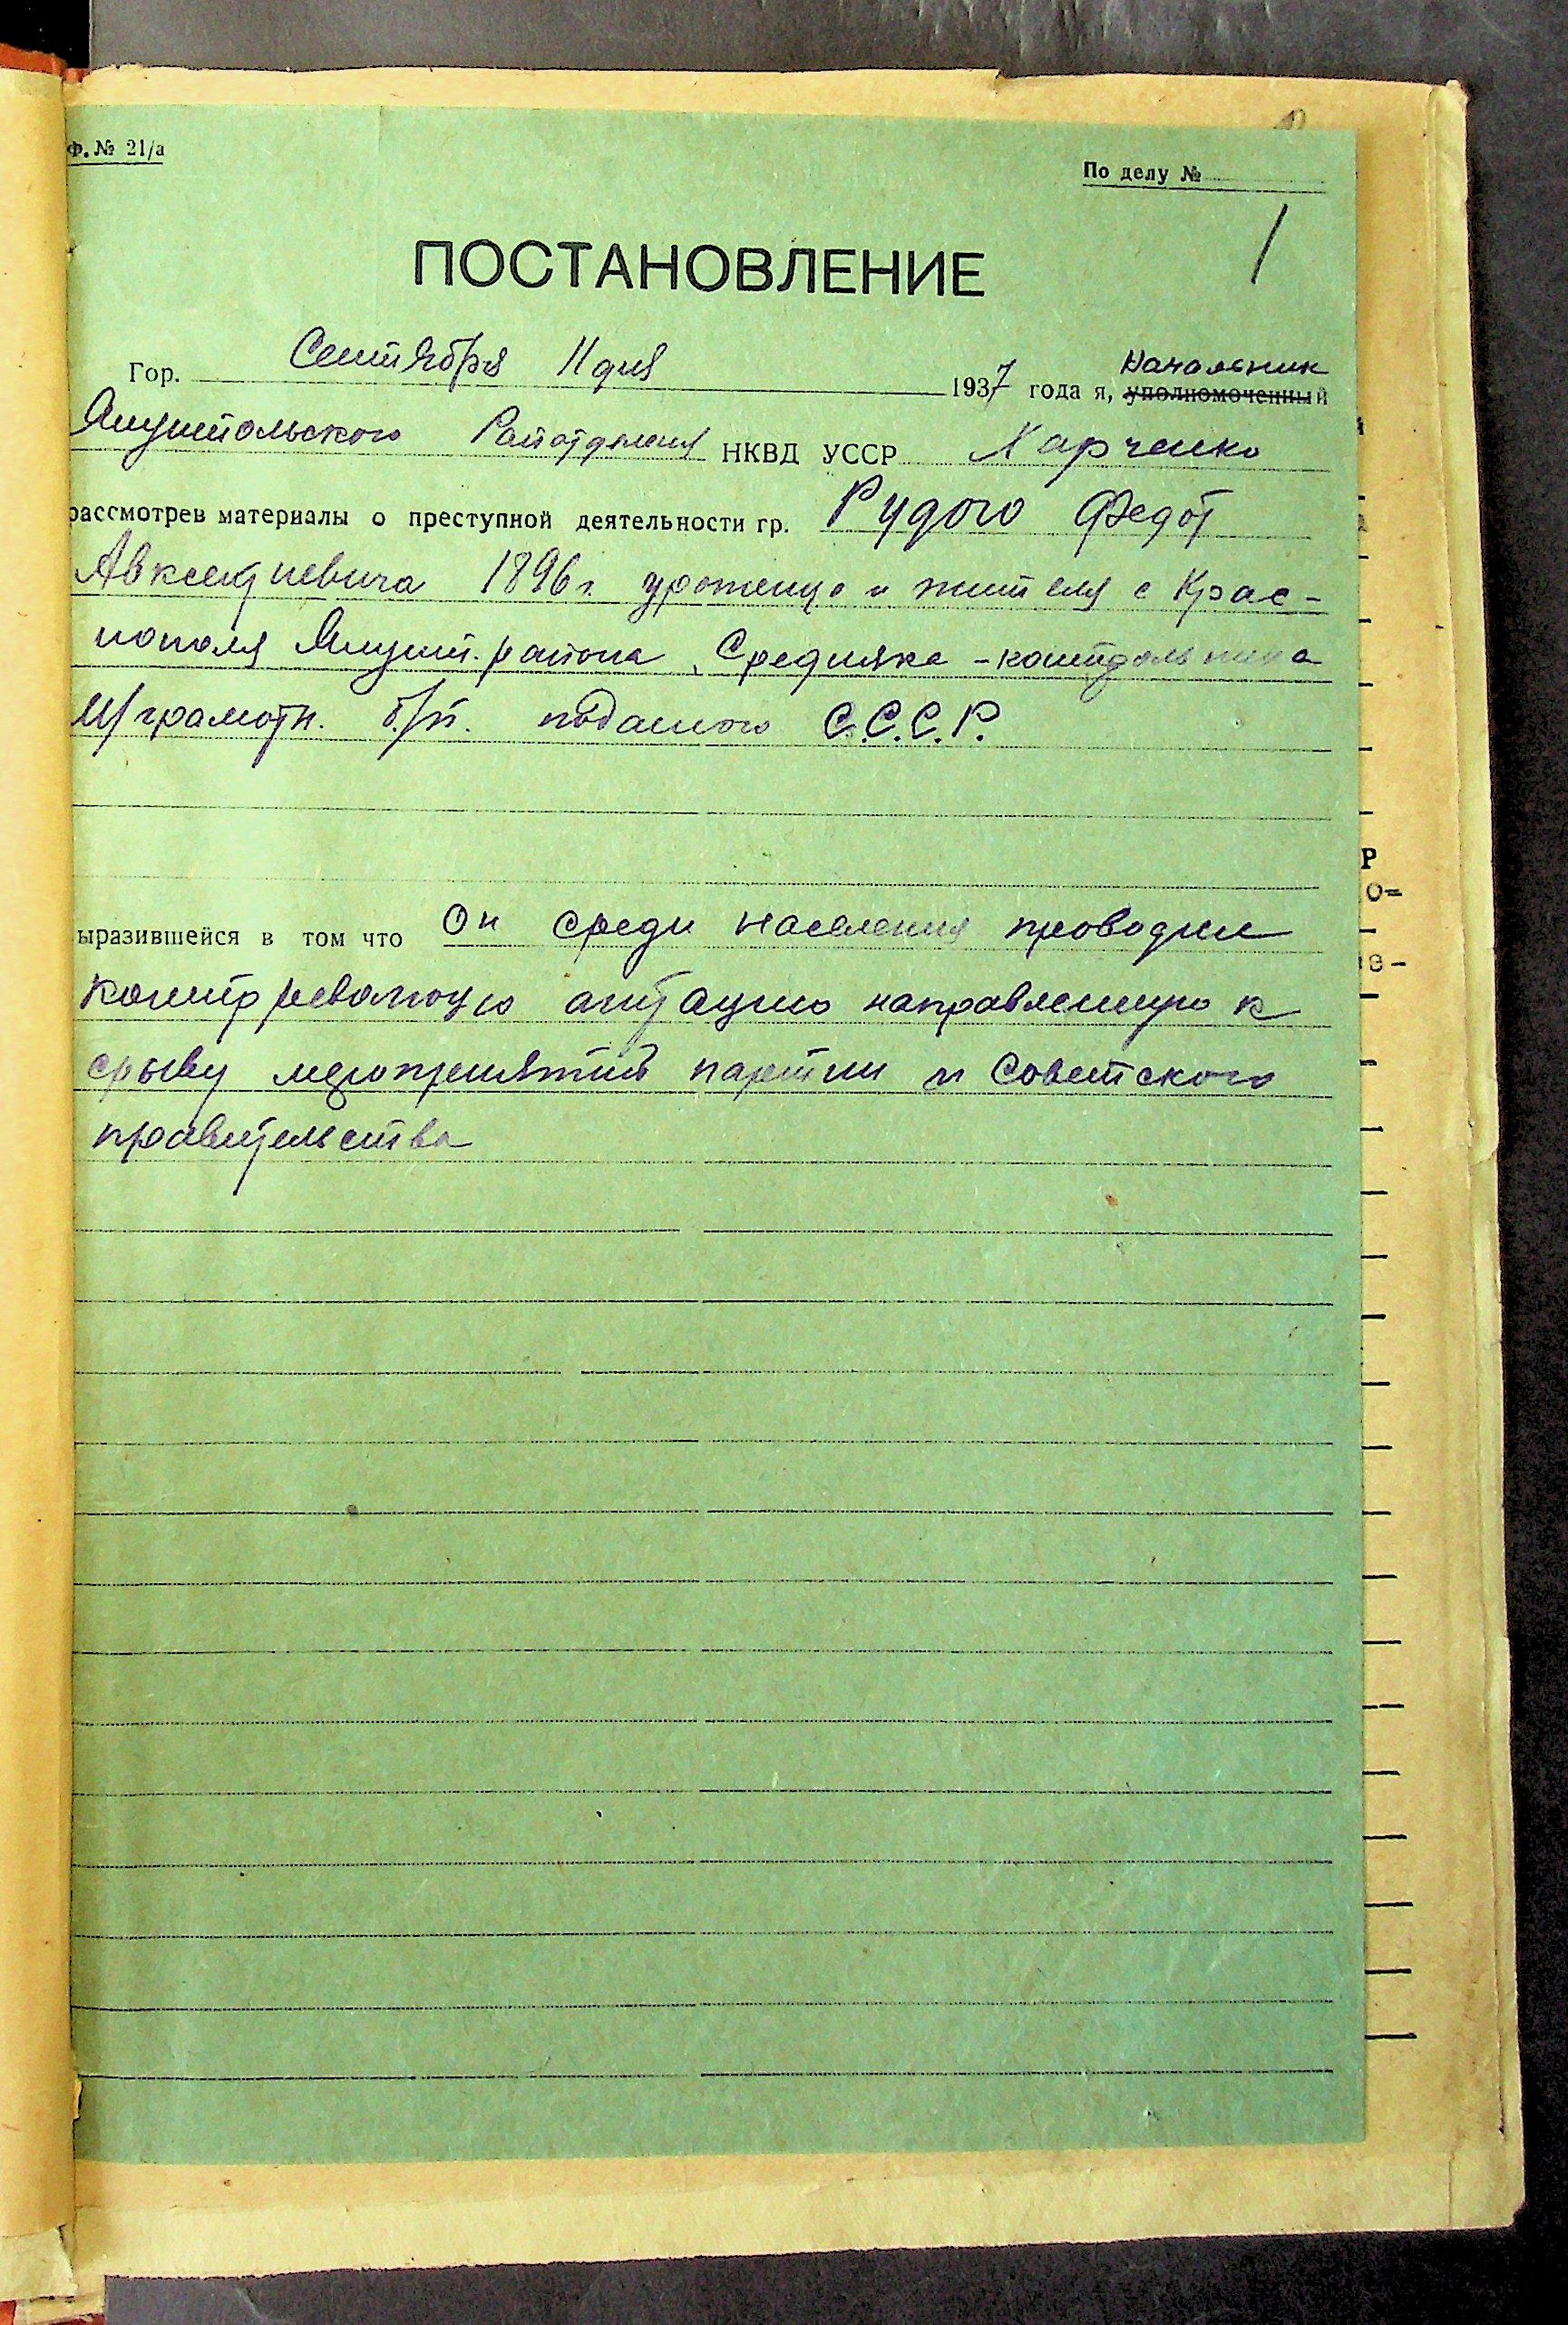 Ф. № 21/а
По делу №
1
ПОСТАНОВЛЕНИЕ
Гор. Сентября 11 дня 1937 года я, уполномоченный Начальник
Янушпольского Райотделения НКВД УССР Харченко
рассмотрев материалы о преступной деятельности гр. Рудого Федот
Авксентиевича 1896 г. уроженца и жителя с Крас-
нополя Янушп. района, Средняка -
м/грамотн. б/п. поданого С.С.С.Р.
ыразившейся в том что Он среди населения проводил
агитацию направленную к
срыву мероприятий партии и Советского
правительства
Р
о=